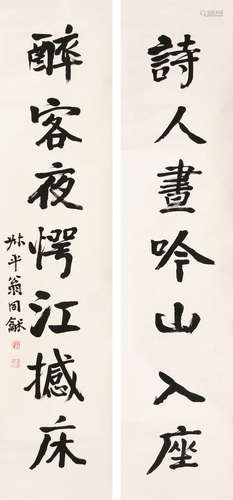 詩人晝吟山入座
醉客夜愕江撼床
叔平翁同龢